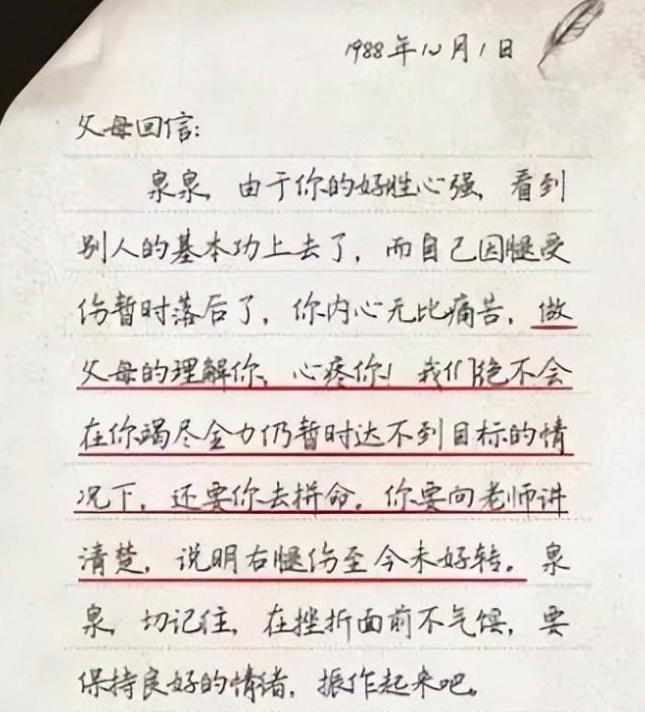 1988年12月1日
父母回信:
泉泉,由于你的好胜心强,看到
别人的基本功上去了,而自己因腿受
伤暂时落后了,你内心无比痛苦,做
父母的理解你、心疼你!我们绝不会
在你竭尽全力仍暂时达不到目标的情
况下,还要你去拼命。你要向老师讲
清楚,说明右腿伤至今未好转。泉
泉,切记住,在挫折面前不气馁,要
保持良好的情绪,振作起来吧。